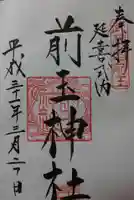 奉拝
延喜式内
前玉神社
平成三十一年三月二十日